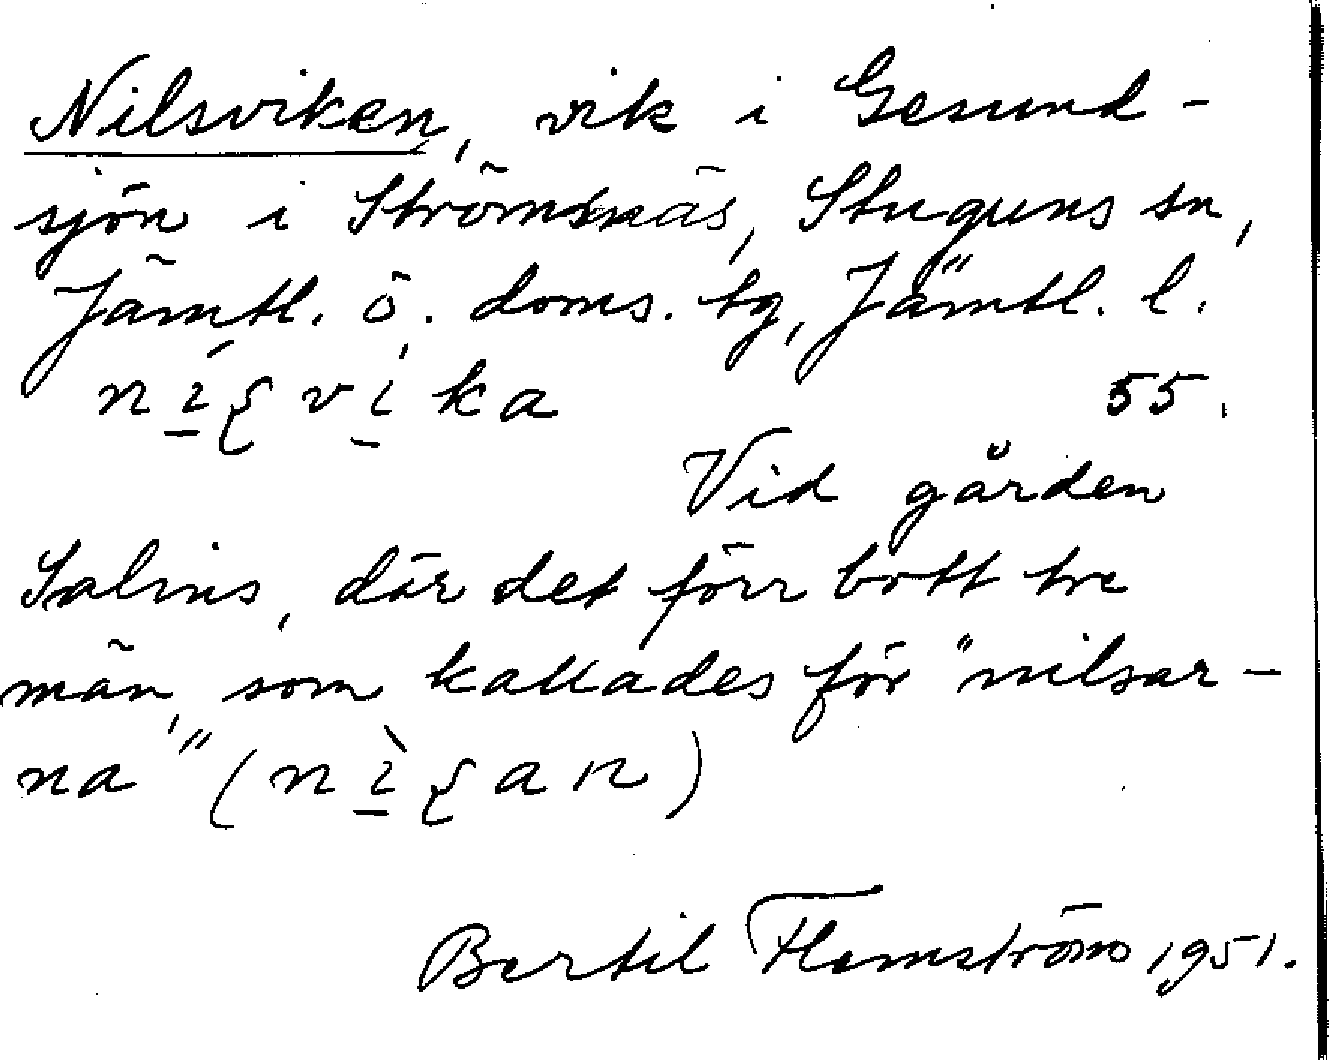 Nilsviken, vik i Gesund-
sjön i Strömsnäs, Stuguns sn,
Jämtl. ö. doms. tg, Jämtl. l.
nı̲́ʂvı̲̍ka 55.
Vid gården
Salins, där det förr bott tre
män, som kallades för "nilsar-
na" (nı̲̀ʂan)
Bertil Flemström 1951.